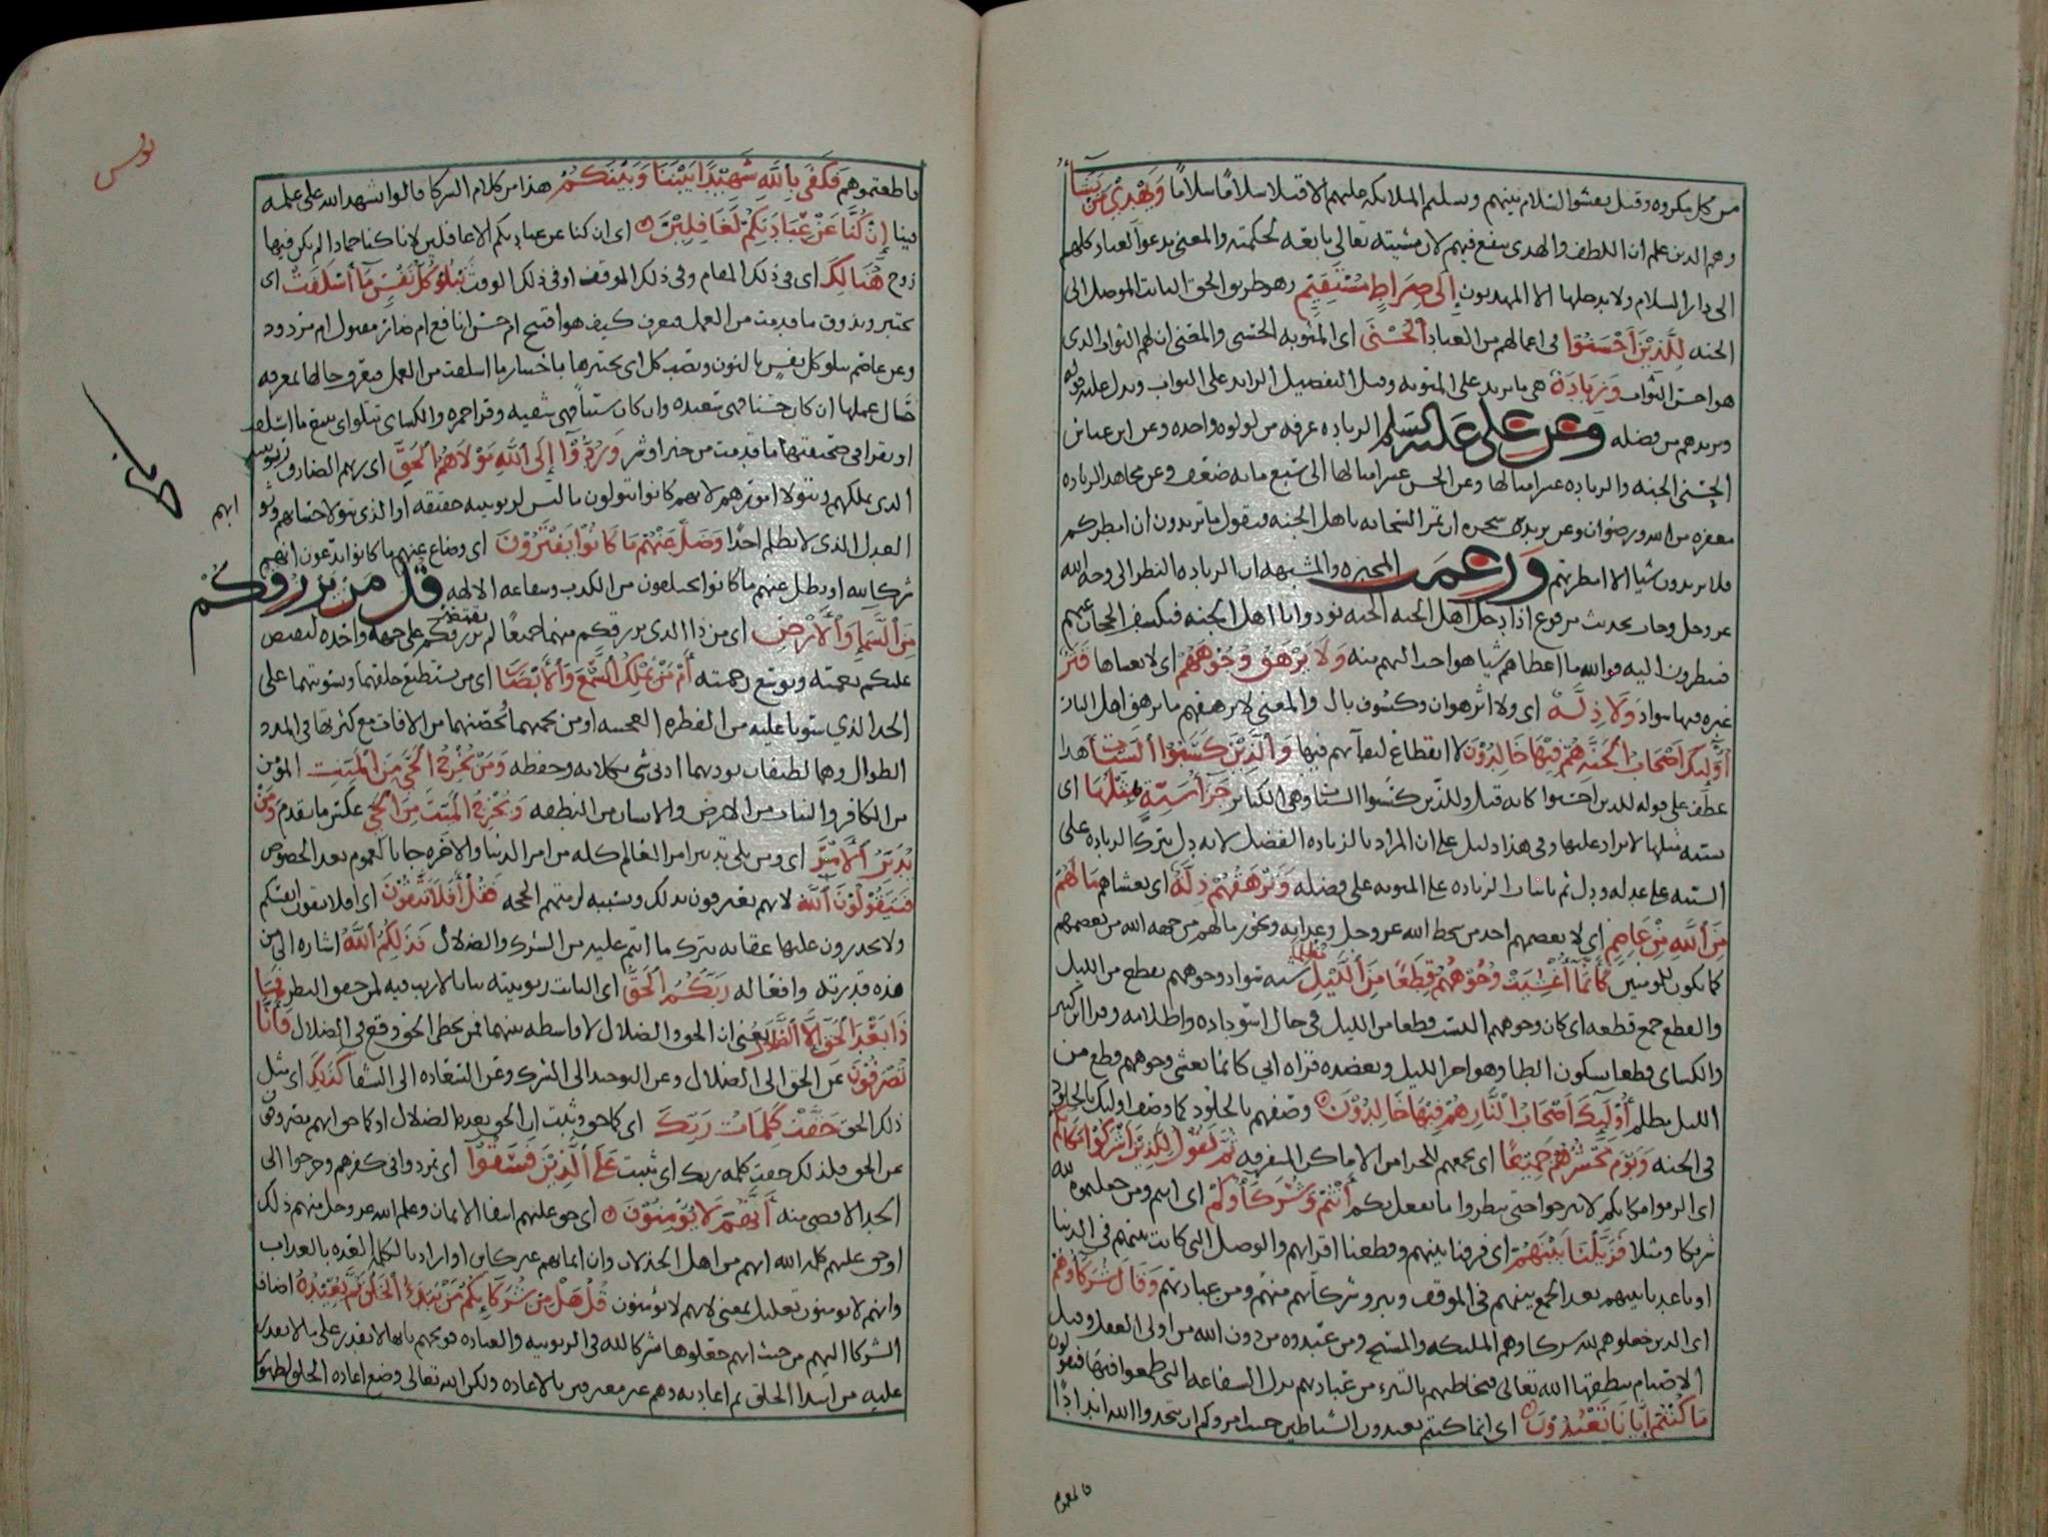 من كل مكروه وقيل يفشوا السلام بينهم وتسليم الملائكه عليهم الا قيلا سلامًا سلامًا وَيَهْدِي مَنْ يَشَاءُ
وهم الذين علم ان اللطف والهدى ينفع فيهم لان مشيته تعالى تابعه لحكمته والمعنى يدعوا العباد كلهم
الى دار السلام ولا يدخلها الا المهديون إِلَى صِرَاطٍ مُسْتَقِيمٍ وهو طريق الحق الثابت الموصل الى
الجنه لِلَّذِينَ أَحْسَنُوا في اعمالهم من العباد الْحُسْنَى اى المثوبه الحسنى والمعنى ان لهم الثواب الذى
هو احسن الثواب وَزِيَادَة هي ما يزيد على المثوبه وهى التفضيل الزايد على الثواب ويدل عليه قوله
ويزيدهم من فضله وعن على عليه السلم الزياده غرفه من لولوه واحده وعن ابن عباس
الحسنى الجنه والزياده عشر امثالها وعن الحسن عشر امثالها الى سبع مايه ضعف وعن مجاهد الزياده
مغفره من الله ورضوان وعن يزيد بن سجره ان تمر السحابه باهل الجنه فتقول ما تريدون ان امطركم
فلا يريدون شيا الا امطرتهم وزعمت المجبره والمشبهه ان الزياده النظر الى وجه الله
عز وجل وجات بحديث مرفوع اذا دخل اهل الجنه الجنه نودوا يا اهل الجنه فيكشف الحجاب عنهم
فينظرون اليه فوالله ما اعطاهم شيا هو احب اليهم منه وَلَا يَرْهَقُ وُجُوهَهُمْ اى لا يغشاها قَتَرٌ
غبره فيها سواد وَلَا ذِلَّةٌ اى ولا اثر هوان وكسوف بال والمعنى لا يرهقهم ما يرهق اهل النار
أُولَئِكَ أَصْحَابُ الْجَنَّةِ هُمْ فِيهَا خَالِدُونَ لا انقطاع لبقآيهم فيها وَالَّذِينَ كَسَبُوا السَّيِّئَاتِ هذا
عطف على قوله للذين احسنوا كانه قيل وللذين كسبوا السيئات وهى الكبائر جَزَاءُ سَيِّئَةٍ بِمِثْلِهَا اى
سيئه بمثلها لا يزاد عليها وفي هذا دليل على ان المراد بالزياده الفضل لانه دل بترك الزياده على
السيئه على عدله ودل ثم باثبات الزياده على المثوبه على فضله وَتَرْهَقُهُمْ ذِلَّةٌ اى يغشاهم مَا لَهُمْ
مِنَ اللَّهِ مِنْ عَاصِمٍ اى لا يعصمهم احد من سخط الله عز وجل وعذابه ويجوز ما لهم من جهه الله من يعصمهم
كما يكون للمومنين كَأَنَّمَا أُغْشِيَتْ وُجُوهُهُمْ قِطَعًا مِنَ اللَّيْلِ مُظْلِمًا شبه سواد وجوههم بقطع من الليل
والقطع جمع قطعه اى كان وجوههم البست قطعا من الليل في حال اسوداده واظلامه وقرا ابن كثير
والكساى قطعا بسكون الطا وهو اخر الليل ويعضده قراه ابي كانما يغشى وجوههم قطع من
الليل مظلم أُولَئِكَ أَصْحَابُ النَّارِ هُمْ فِيهَا خَالِدُونَ وصفهم بالخلود كما وصف اوليك بالخلود
في الجنه وَيَوْمَ نَحْشُرُهُمْ جَمِيعًا اى نجمعهم للجزا من الاماكن المتفرقه ثُمَّ نَقُولُ لِلَّذِينَ أَشْرَكُوا مَكَانَكُمْ
اى الزموا مكانكم لا تبرحوا حتى تنظروا ما نفعل بكم أَنْتُمْ وَشُرَكَاؤُكُمْ اى انتم ومن جعلتموه لله
شريكا ومثلا فَزَيَّلْنَا بَيْنَهُمْ اى فرقنا بينهم وقطعنا اقرانهم والوصل التي كانت بينهم في الدنيا
او باعدنا بينهم بعد الجمع بينهم في الموقف وتبرو شركاهم منهم ومن عبادتهم وَقَالَ شُرَكَاؤُهُمْ
اى الذين جعلوهم لله شركا وهم المليكه والمسيح ومن عبدوه من دون الله من اولى العقل وقيل
الاصنام ينطقها الله تعالى فتخاطبهم بالتبرء من عبادتهم بدل الشفاعه التي طمعوا فيها فيقولون
مَا كُنْتُمْ إِيَّانَا تَعْبُدُونَ اى انما كنتم تعبدون الشياطين حيث امروكم ان تتخذوا الله اندادًا
يونس
فاطعتموهم فَكَفَى بِاللَّهِ شَهِيدًا بَيْنَنَا وَبَيْنَكُمْ هذا من كلام الشركا قالوا شهد الله على علمه
فينا إِنْ كُنَّا عَنْ عِبَادَتِكُمْ لَغَافِلِينَ اى ان كنا عن عبادتكم الا غافلين لانا كنا جمادا لم يكن فيها
روح هُنَالِكَ اى في ذلك المقام وفى ذلك الموقف او فى ذلك الوقت تَبْلُو كُلُّ نَفْسٍ مَا أَسْلَفَتْ اى
تختبر وتذوق ما قدمت من العمل فتعرف كيف هو اقبيح ام حسن انافع ام ضار مقبول ام مردود
وعن عاصم نبلو كل نفس بالنون ونصب كل اى نختبرها باختبار ما اسلفت من العمل فيعرف حالها بمعرفه
حال عملها ان كان حسنا فهى سعيده وان كان سيئا فهي شقيه وقرا حمزه والكساى تتلوا اى تتبع ما اسلفت
او تقرا في صحيفتها ما قدمت من خير او شر وَرُدُّوا إِلَى اللَّهِ مَوْلَاهُمُ الْحَقِّ اى ربهم الصادق ربوبيته
الذى يملكهم ويتولا امورهم لانهم كانوا يتولون ما ليس لربوبيته حقيقه او الذى يتولا حسابهم وثوابهم
العدل الذى لا يظلم احدًا وَضَلَّ عَنْهُمْ مَا كَانُوا يَفْتَرُونَ اى وضاع عنهم ما كانوا يدعون انهم
شركا لله او بطل عنهم ما كانوا يختلقون من الكذب وشفاعه الالهه قُلْ مَنْ يَرْزُقُكُمْ
مِنَ السَّمَاءِ وَالْأَرْضِ اى من ذا الذى يرزقكم منهما جميعًا لم يرزقكم على جهه واحده ليفيض
عليكم نعمته ويوسع رحمته أَمَّنْ يَمْلِكُ السَّمْعَ وَالْأَبْصَارَ اى من يستطيع خلقهما وتسويتهما على
الحد الذي سويا عليه من الفطره العجيبه او من يحميهما ويحصنهما من الافات مع كثرتها في المدد
الطوال وهما لطيفان يوذيهما ادنى شى بكلاته وحفظه وَمَنْ يُخْرِجُ الْحَيَّ مِنَ الْمَيِّتِ المؤمن
من الكافر والنبات من الارض والانسان من النطفه وَيُخْرِجُ الْمَيِّتَ مِنَ الْحَيِّ عكس ما تقدم وَمَنْ
يُدَبِّرُ الْأَمْرَ اى ومن يلى تدبير امر العالم كله من امر الدنيا والاخره جا بالعموم بعد الخصوص
فَسَيَقُولُونَ اللَّهُ لانهم يعترفون بذلك وبسببه لزمتهم الحجه فَقُلْ أَفَلَا تَتَّقُونَ اى افلا تقون انفسكم
ولا تحذرون عليها عقابه بترك ما انتم عليه من الشرك والضلال فَذَلِكُمُ اللَّهُ اشاره الى من
هذه قدرته وافعاله رَبُّكُمُ الْحَقُّ اى الثابت ربوبيته ثباتا لا ريب فيه لمن حقق النظر فَمَا
ذَا بَعْدَ الْحَقِّ إِلَّا الضَّلَالُ يعنى ان الحق والضلال لا واسطه بينهما فمن تخطى الحق وقع في الضلال فَأَنَّى
تُصْرَفُونَ عن الحق الى الضلال وعن التوحيد الى الشرك وعن السعاده الى الشقا كَذَلِكَ اى مثل
ذلك الحق حَقَّتْ كَلِمَاتُ رَبِّكَ اى كما حق وثبت ان الحق بعده الضلال او كما حق انهم مصروفون
عن الحق فلذلك حقت كلمه ربك اى ثبتت عَلَى الَّذِينَ فَسَقُوا اى تمردوا في كفرهم وخرجوا الى
الحد الاقصى منه أَنَّهُمْ لَا يُؤْمِنُونَ اى حق عليهم انتفا الايمان وعلم الله عز وجل منهم ذلك
او حق عليهم كلمه الله انهم من اهل الخذلان وان ايمانهم غير كاين او اراد بالكلمه العده بالعذاب
وانهم لا يومنون تعليل بمعنى لانهم لا يؤمنون قُلْ هَلْ مِنْ شُرَكَائِكُمْ مَنْ يَبْدَأُ الْخَلْقَ ثُمَّ يُعِيدُهُ اضاف
الشركا اليهم من حيث انهم جعلوها شركا لله في الربوبيه والعباده فوبخهم بانها لا تقدر على ما لا يقدر
عليه من ابتدا الخلق ثم اعادته وهم غير معترفين بالاعاده ولكن الله تعالى وضع اعاده الخلق لظهور